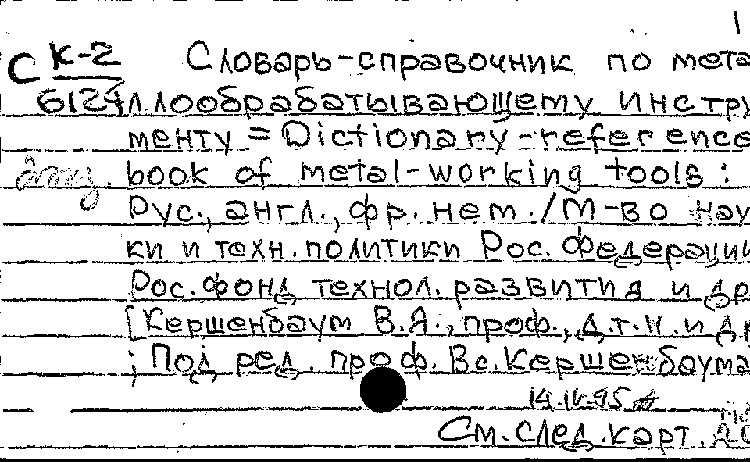 1
С К-2 Словарь-справочник по мета
6124 ллообрабатывающему инстру
менту = Dictionary-reference
book of metal-working tools :
Рус., англ., фр. нем. / М-во нау
ки и техн. политики Рос. Федерации
Рос. фонд технол. развития и др
[Кершенбаум В.Я., проф., д.т.н. и др
; Под ред. проф. Вс. Кершенбаума
14.IV.95
См. след. карт.